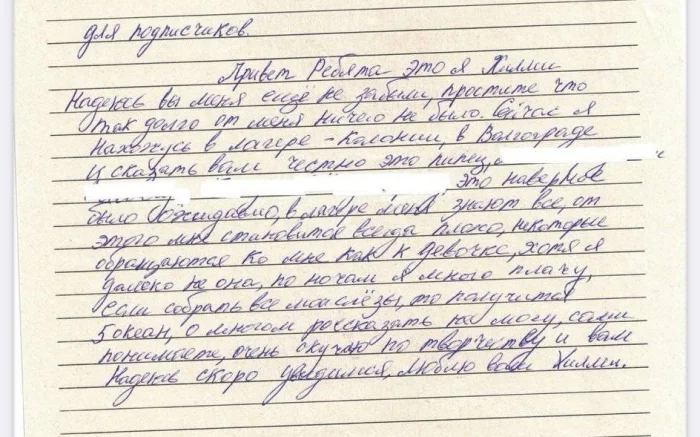 для подписчиков.
Привет Ребята это я Хилми
Надеюсь вы меня ещё не забыли, простите что
так долго от меня ничего не было. Сейчас я
нахожусь в лагере - Колонии, в Волгограде
и сказать вам честно это пипец,
это наверное
было ожидаемо, в лагере меня знают все, от
этого мне становится всегда плохо, некоторые
обращаются ко мне как к девочке, хотя я
далеко не она, по ночам я много плачу,
если собрать все мои слёзы, то получится
5 океан, о многом рассказать не могу, сами
понимаете, очень скучаю по творчеству и вам
Надеюсь скоро увидимся, люблю ваш Хилми.